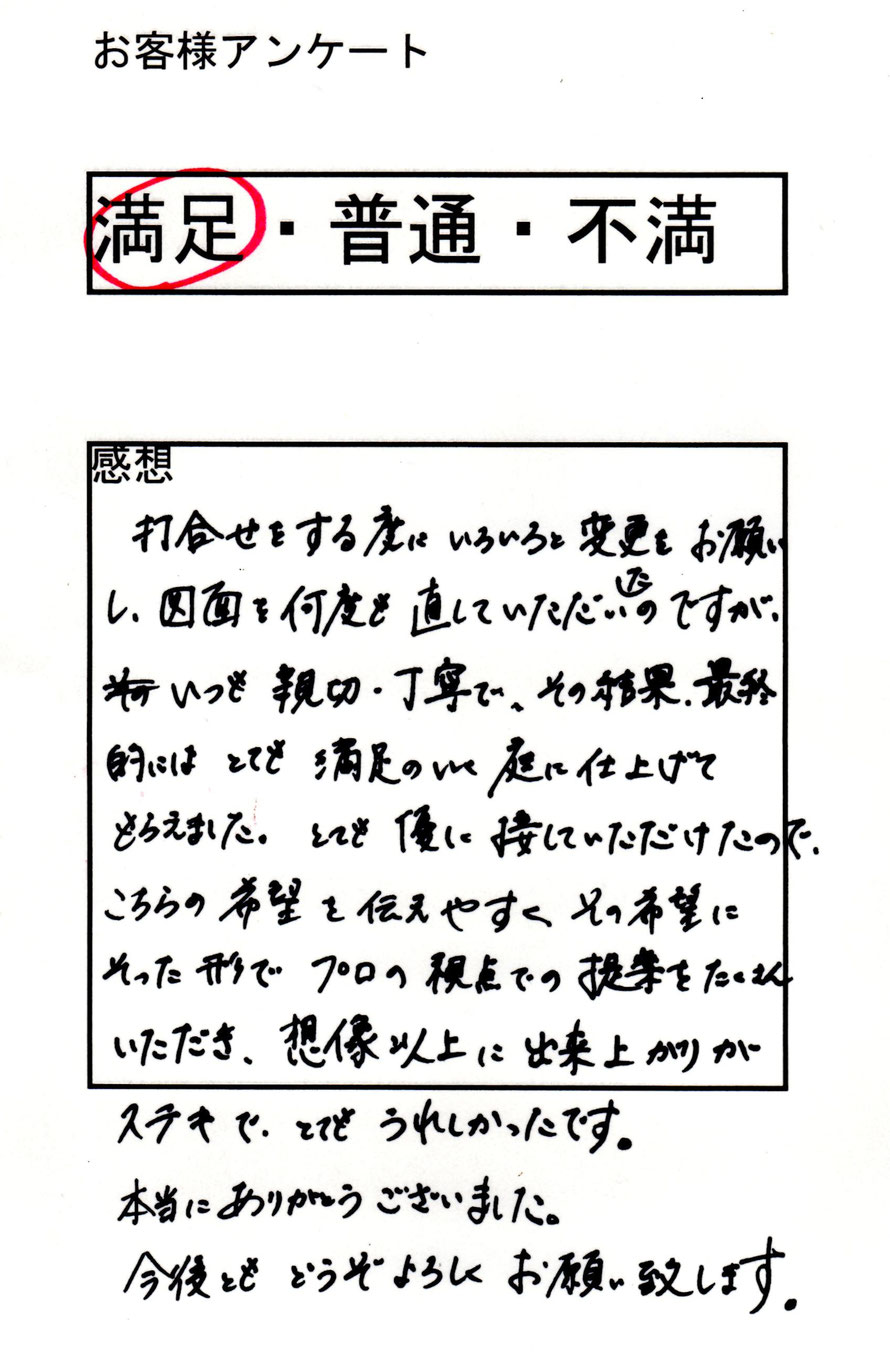 お客様アンケート
満足・普通・不満
感想
打合せをする度にいろいろと変更をお願い
し、図面を何度も直していただいたのですが、
いつも親切・丁寧で、その結果、最終
的にはとても満足のいく庭に仕上げて
もらえました。とても優に接していただけたので、
こちらの希望を伝えやすく、その希望に
そった形でプロの視点での提案をたくさん
いただき、想像以上に出来上がりが
ステキで、とてもうれしかったです。
本当にありがとうございました。
今後ともどうぞよろしくお願い致します。